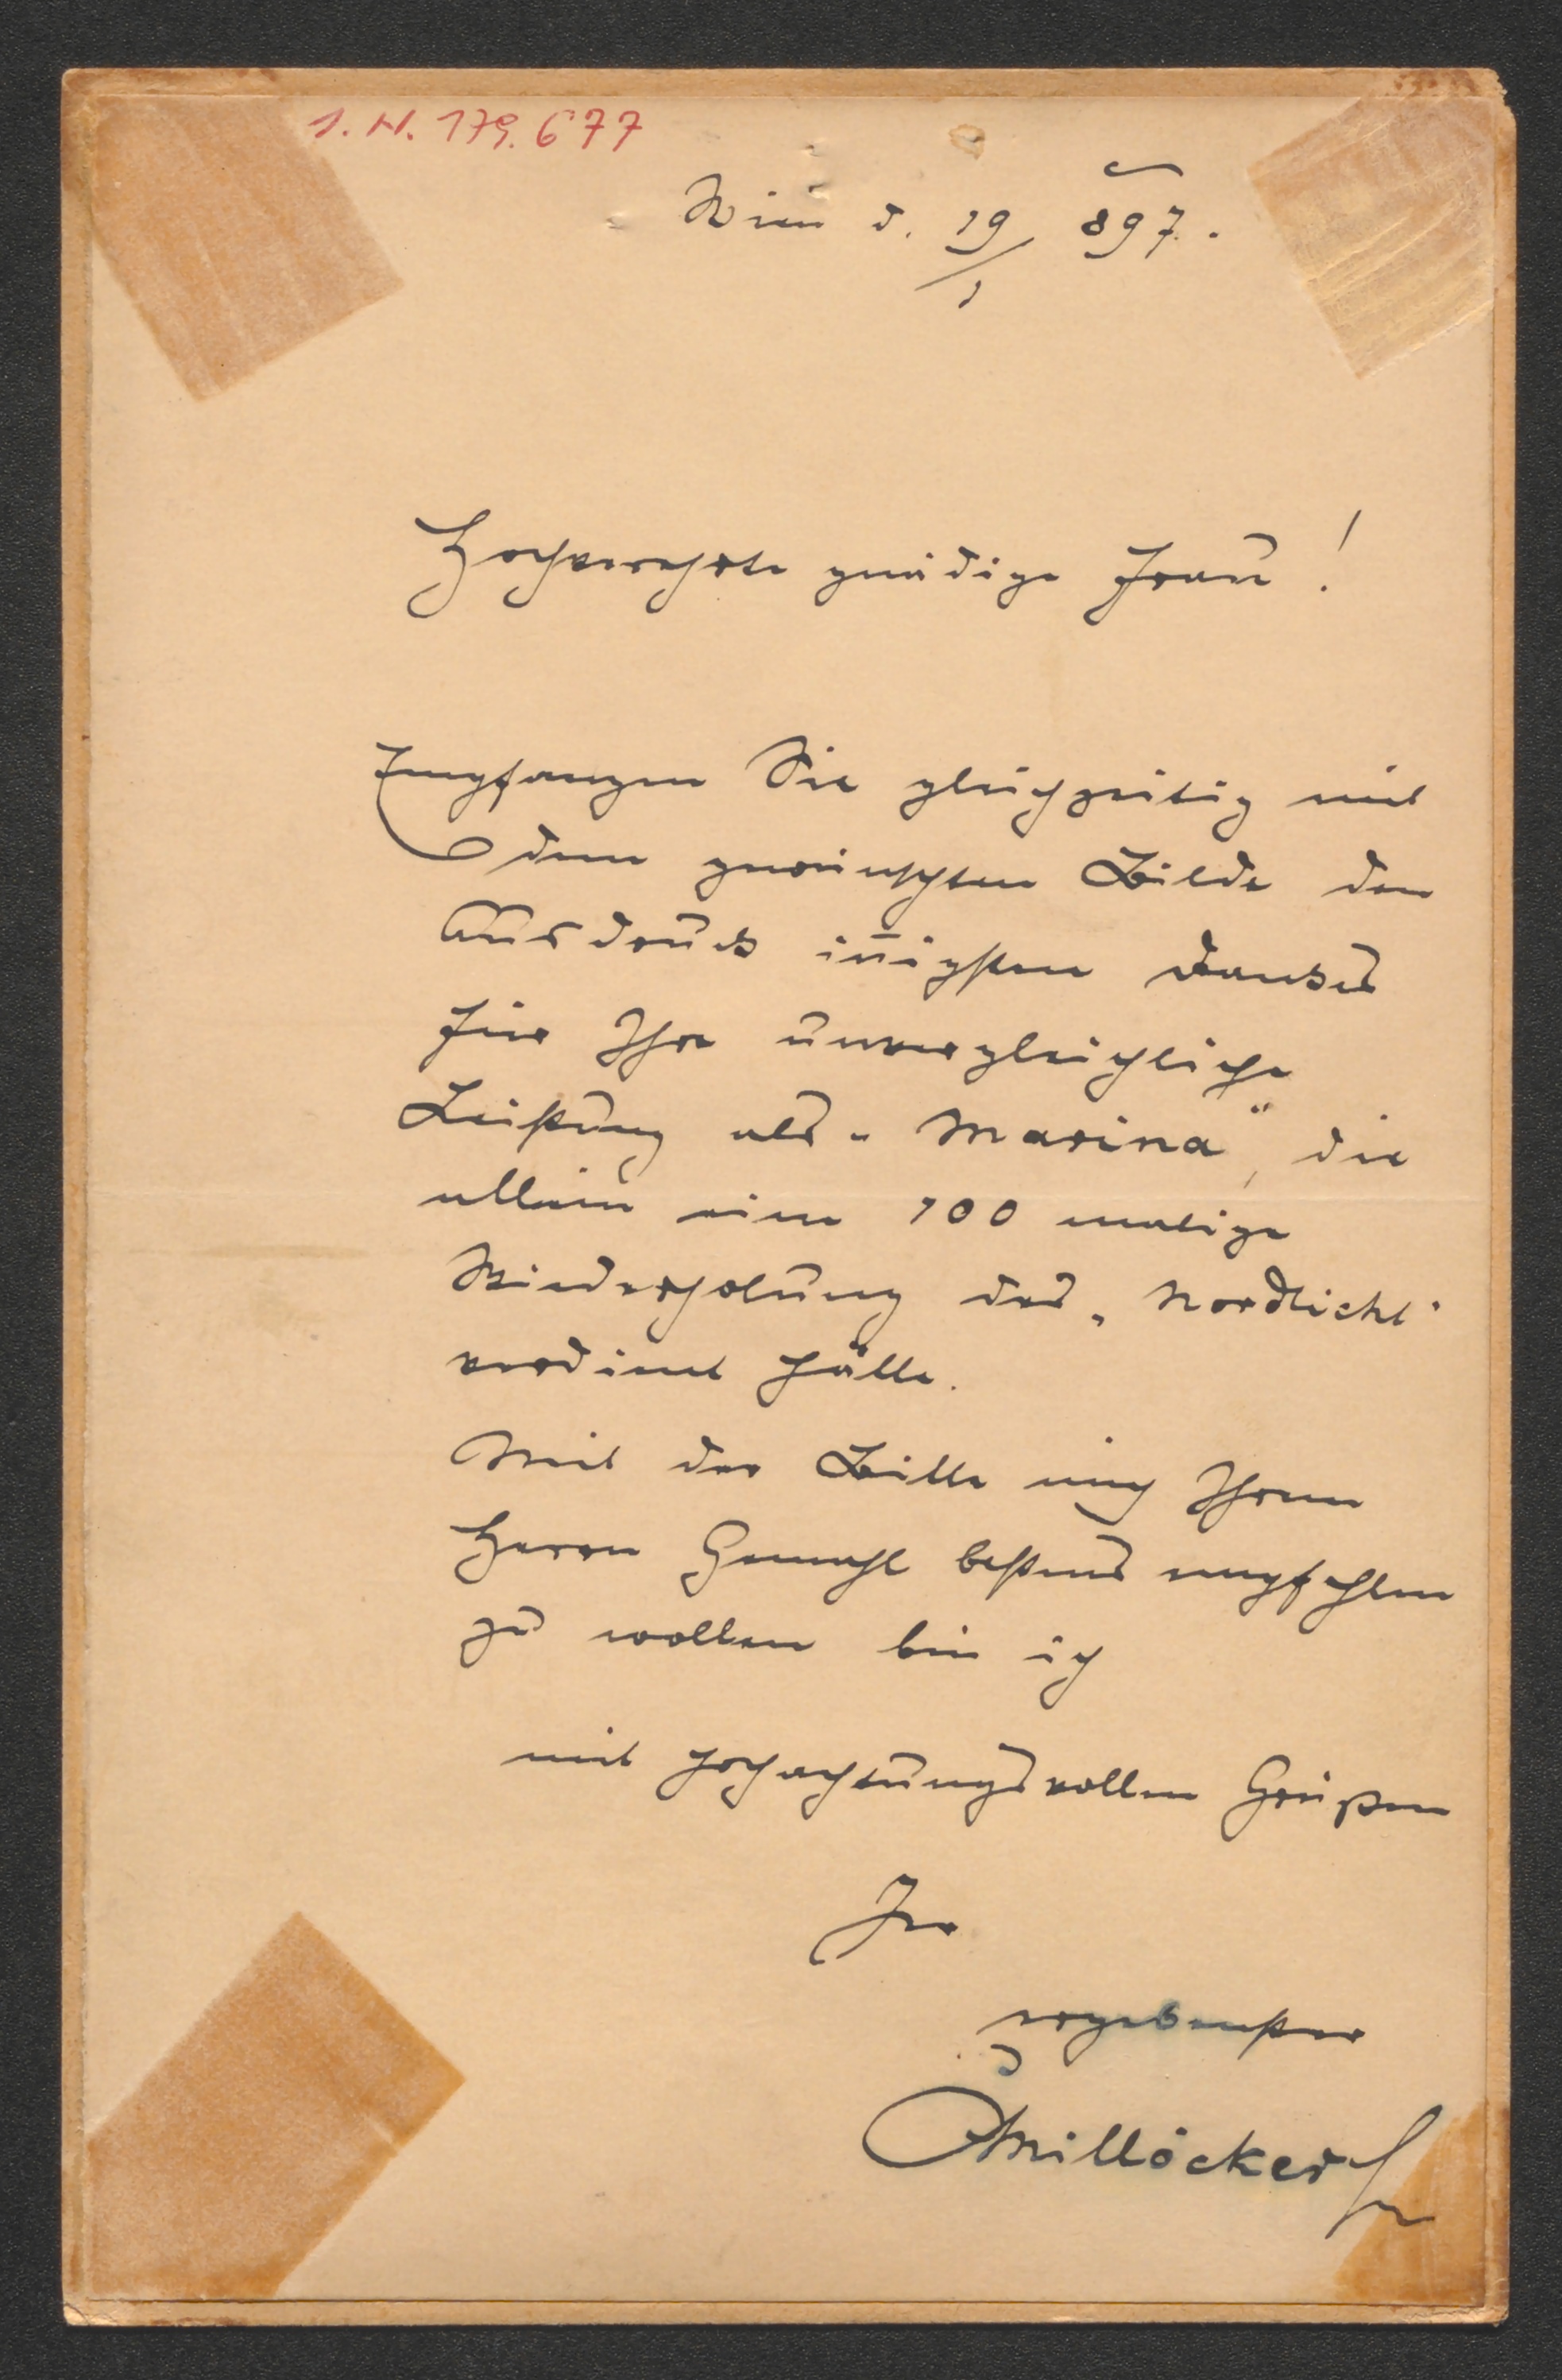 I. N. 179.677
Wien d. 19/1 897.
Hochverehrte gnädige Frau!
Empfangen Sie gleichzeitig mit
dem gewünschten Bilde den
Ausdruck in̄igsten Dankes
für Ihre unvergleichliche
Leistung als „Marina", die
allein eine 100 malige
Wiederholung des „Nordlicht"
verdient hätte.
Mit der Bitte mich Ihrem
Herrn Gemahl bestens empfehlen
zu wollen bin ich
mit hochachtungsvollen Grüßen
Ihr
ergebenster
CMillöcker